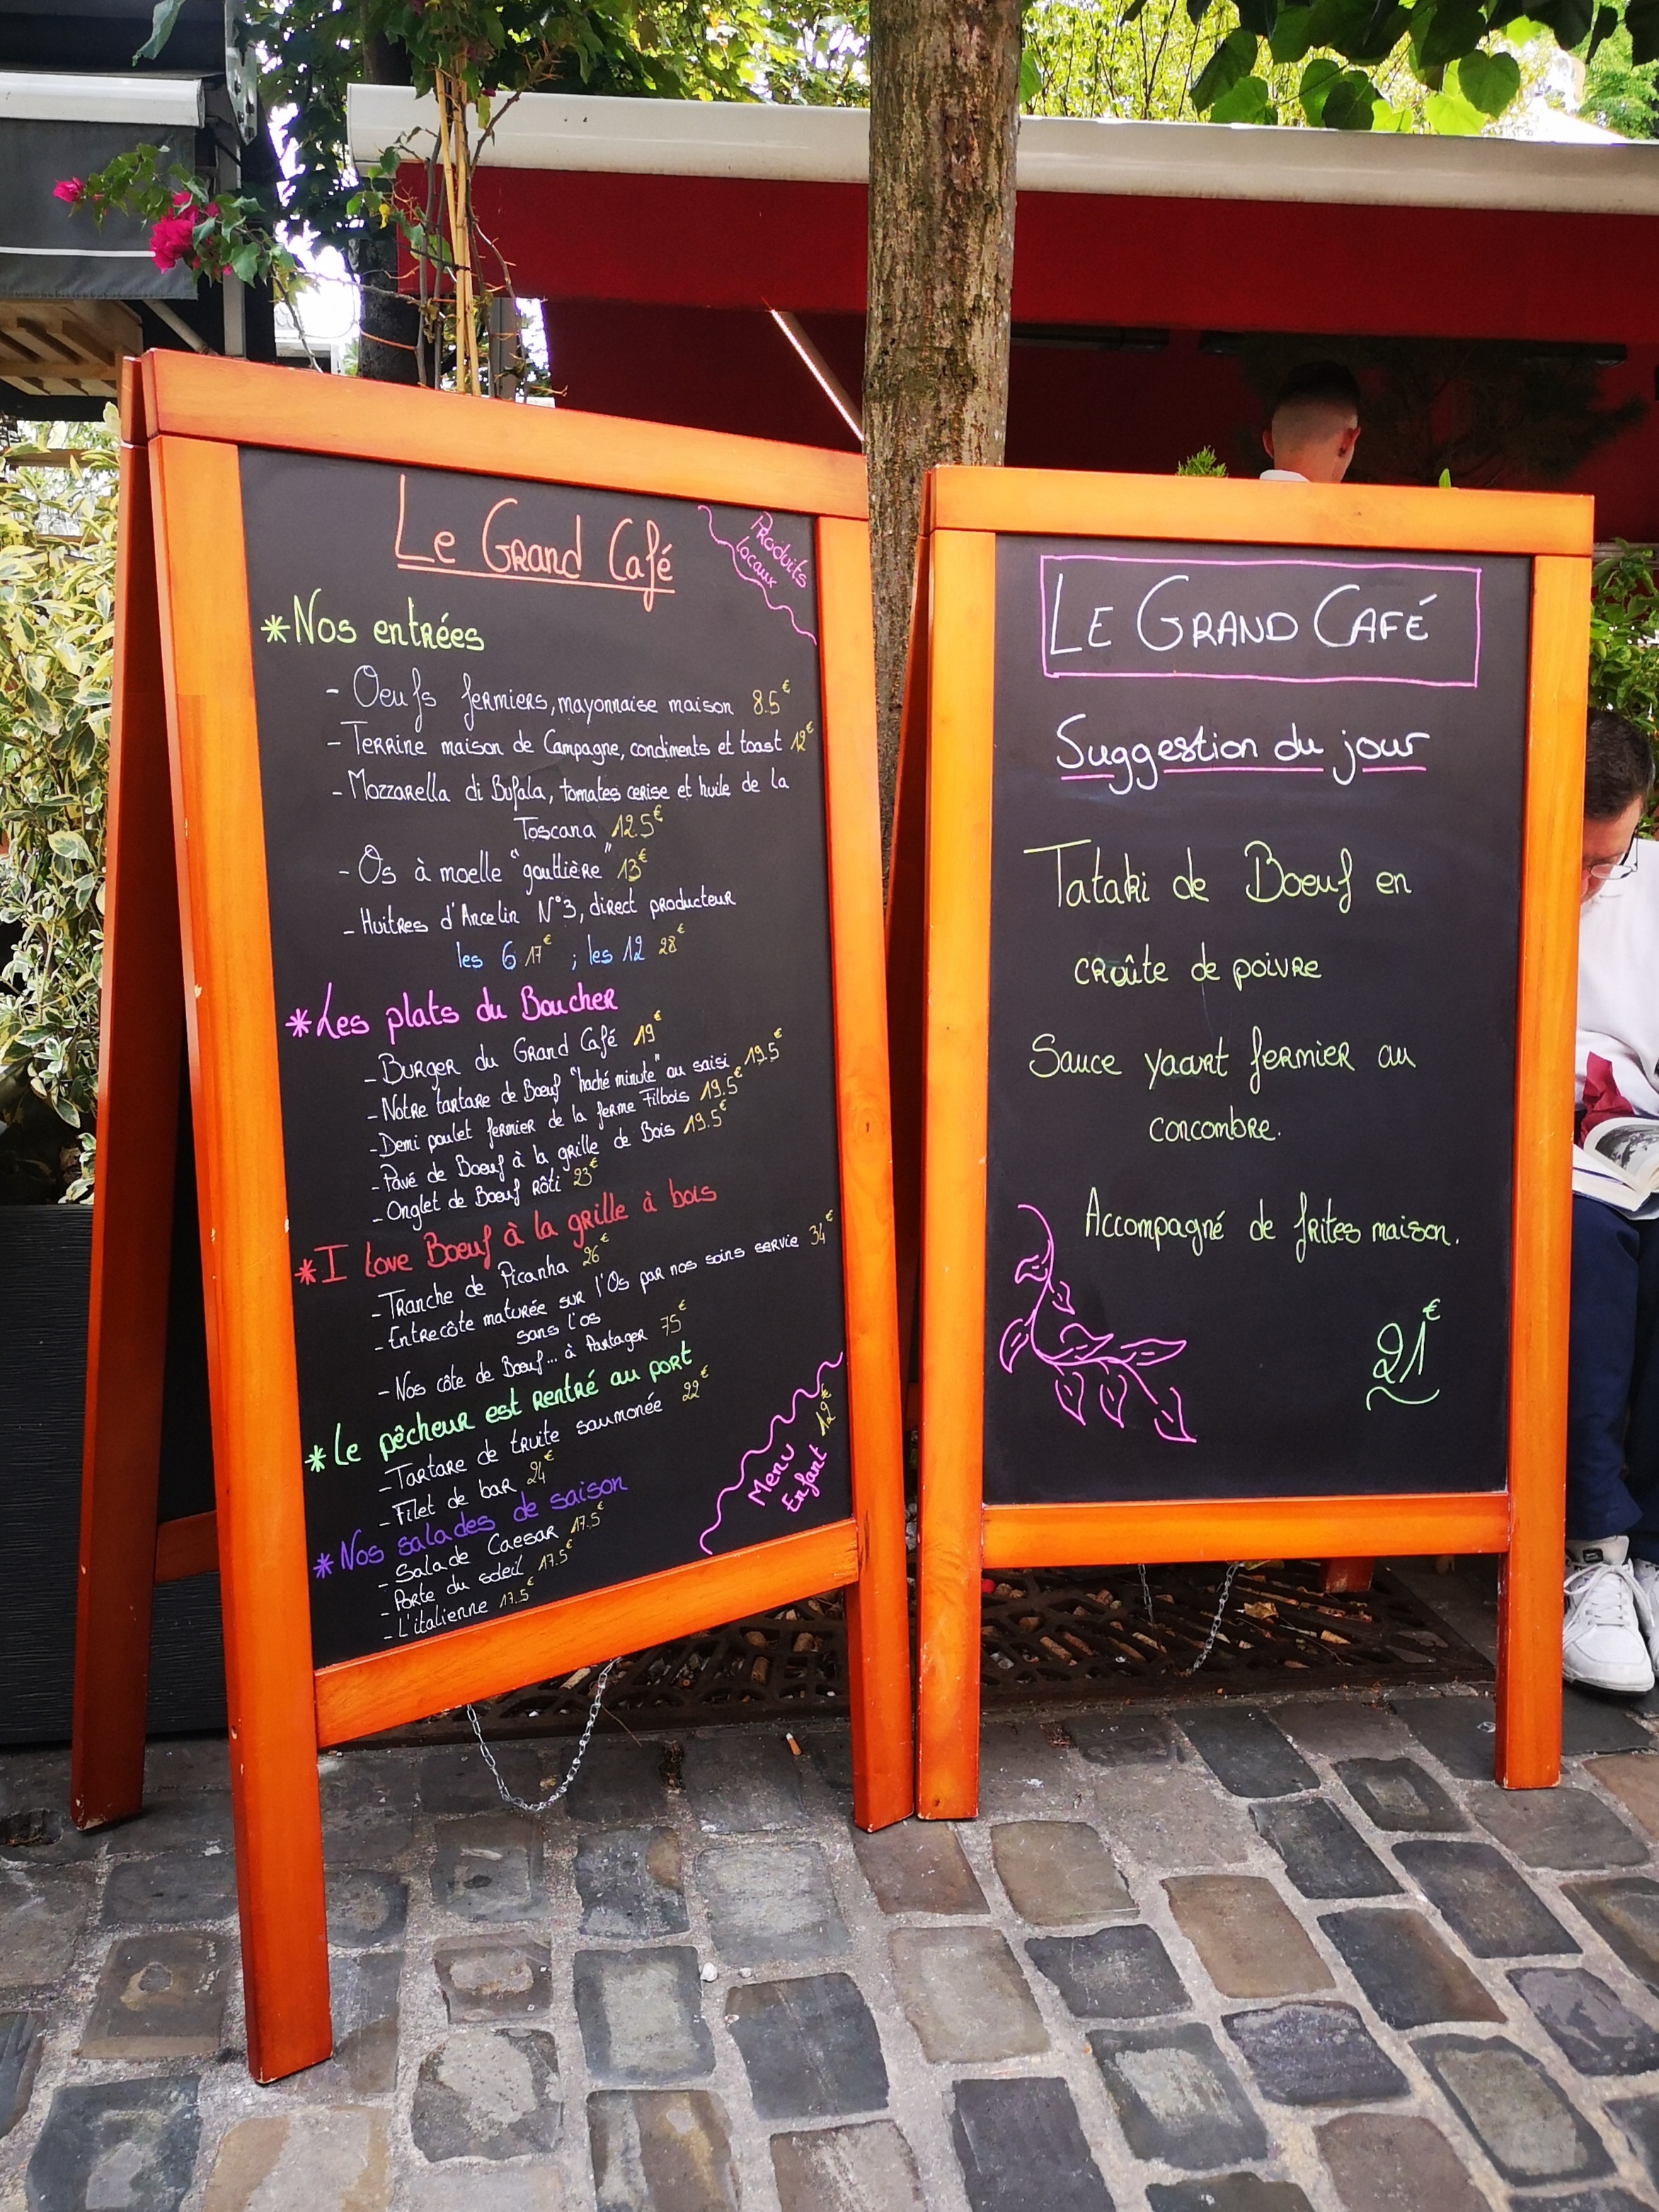 Le Grand Café
Produits
locaux
*Nos entrées
- Oeufs fermiers, mayonnaise maison 8.5€
- Terrine maison de Campagne, condiments et toast 12€
- Mozzarella di Bufala, tomates cerise et huile de la
Toscana 12.5€
- Os à moelle "gouttière" 13€
- Huitres d'Ancelin N°3, direct producteur
les 6 17€ ; les 12 28€
*Les plats du Boucher
- Burger du Grand Café 19€
- Notre tartare de Boeuf "haché minute" ou saisi 19.5€
- Demi poulet fermier de la ferme Filbois 19.5€
- Pavé de Boeuf à la grille de Bois 19.5€
- Onglet de Boeuf rôti 23€
*I love Boeuf à la grille à bois
- Tranche de Picanha 26€
- Entrecôte maturée sur l'Os par nos soins servie 34€
sans l'os
- Nos côte de Boeuf... à Partager 75€
*Le pêcheur est rentré au port
- Tartare de truite saumonée 22€
- Filet de bar 24€
*Nos salades de saison
- Salade Caesar 17.5€
- Porte du soleil 17.5€
- L'italienne 17.5€
Menu 12€
Enfant
LE GRAND CAFÉ
Suggestion du jour
Tataki de Boeuf en
croûte de poivre
Sauce yaourt fermier au
concombre.
Accompagné de frites maison.
21€